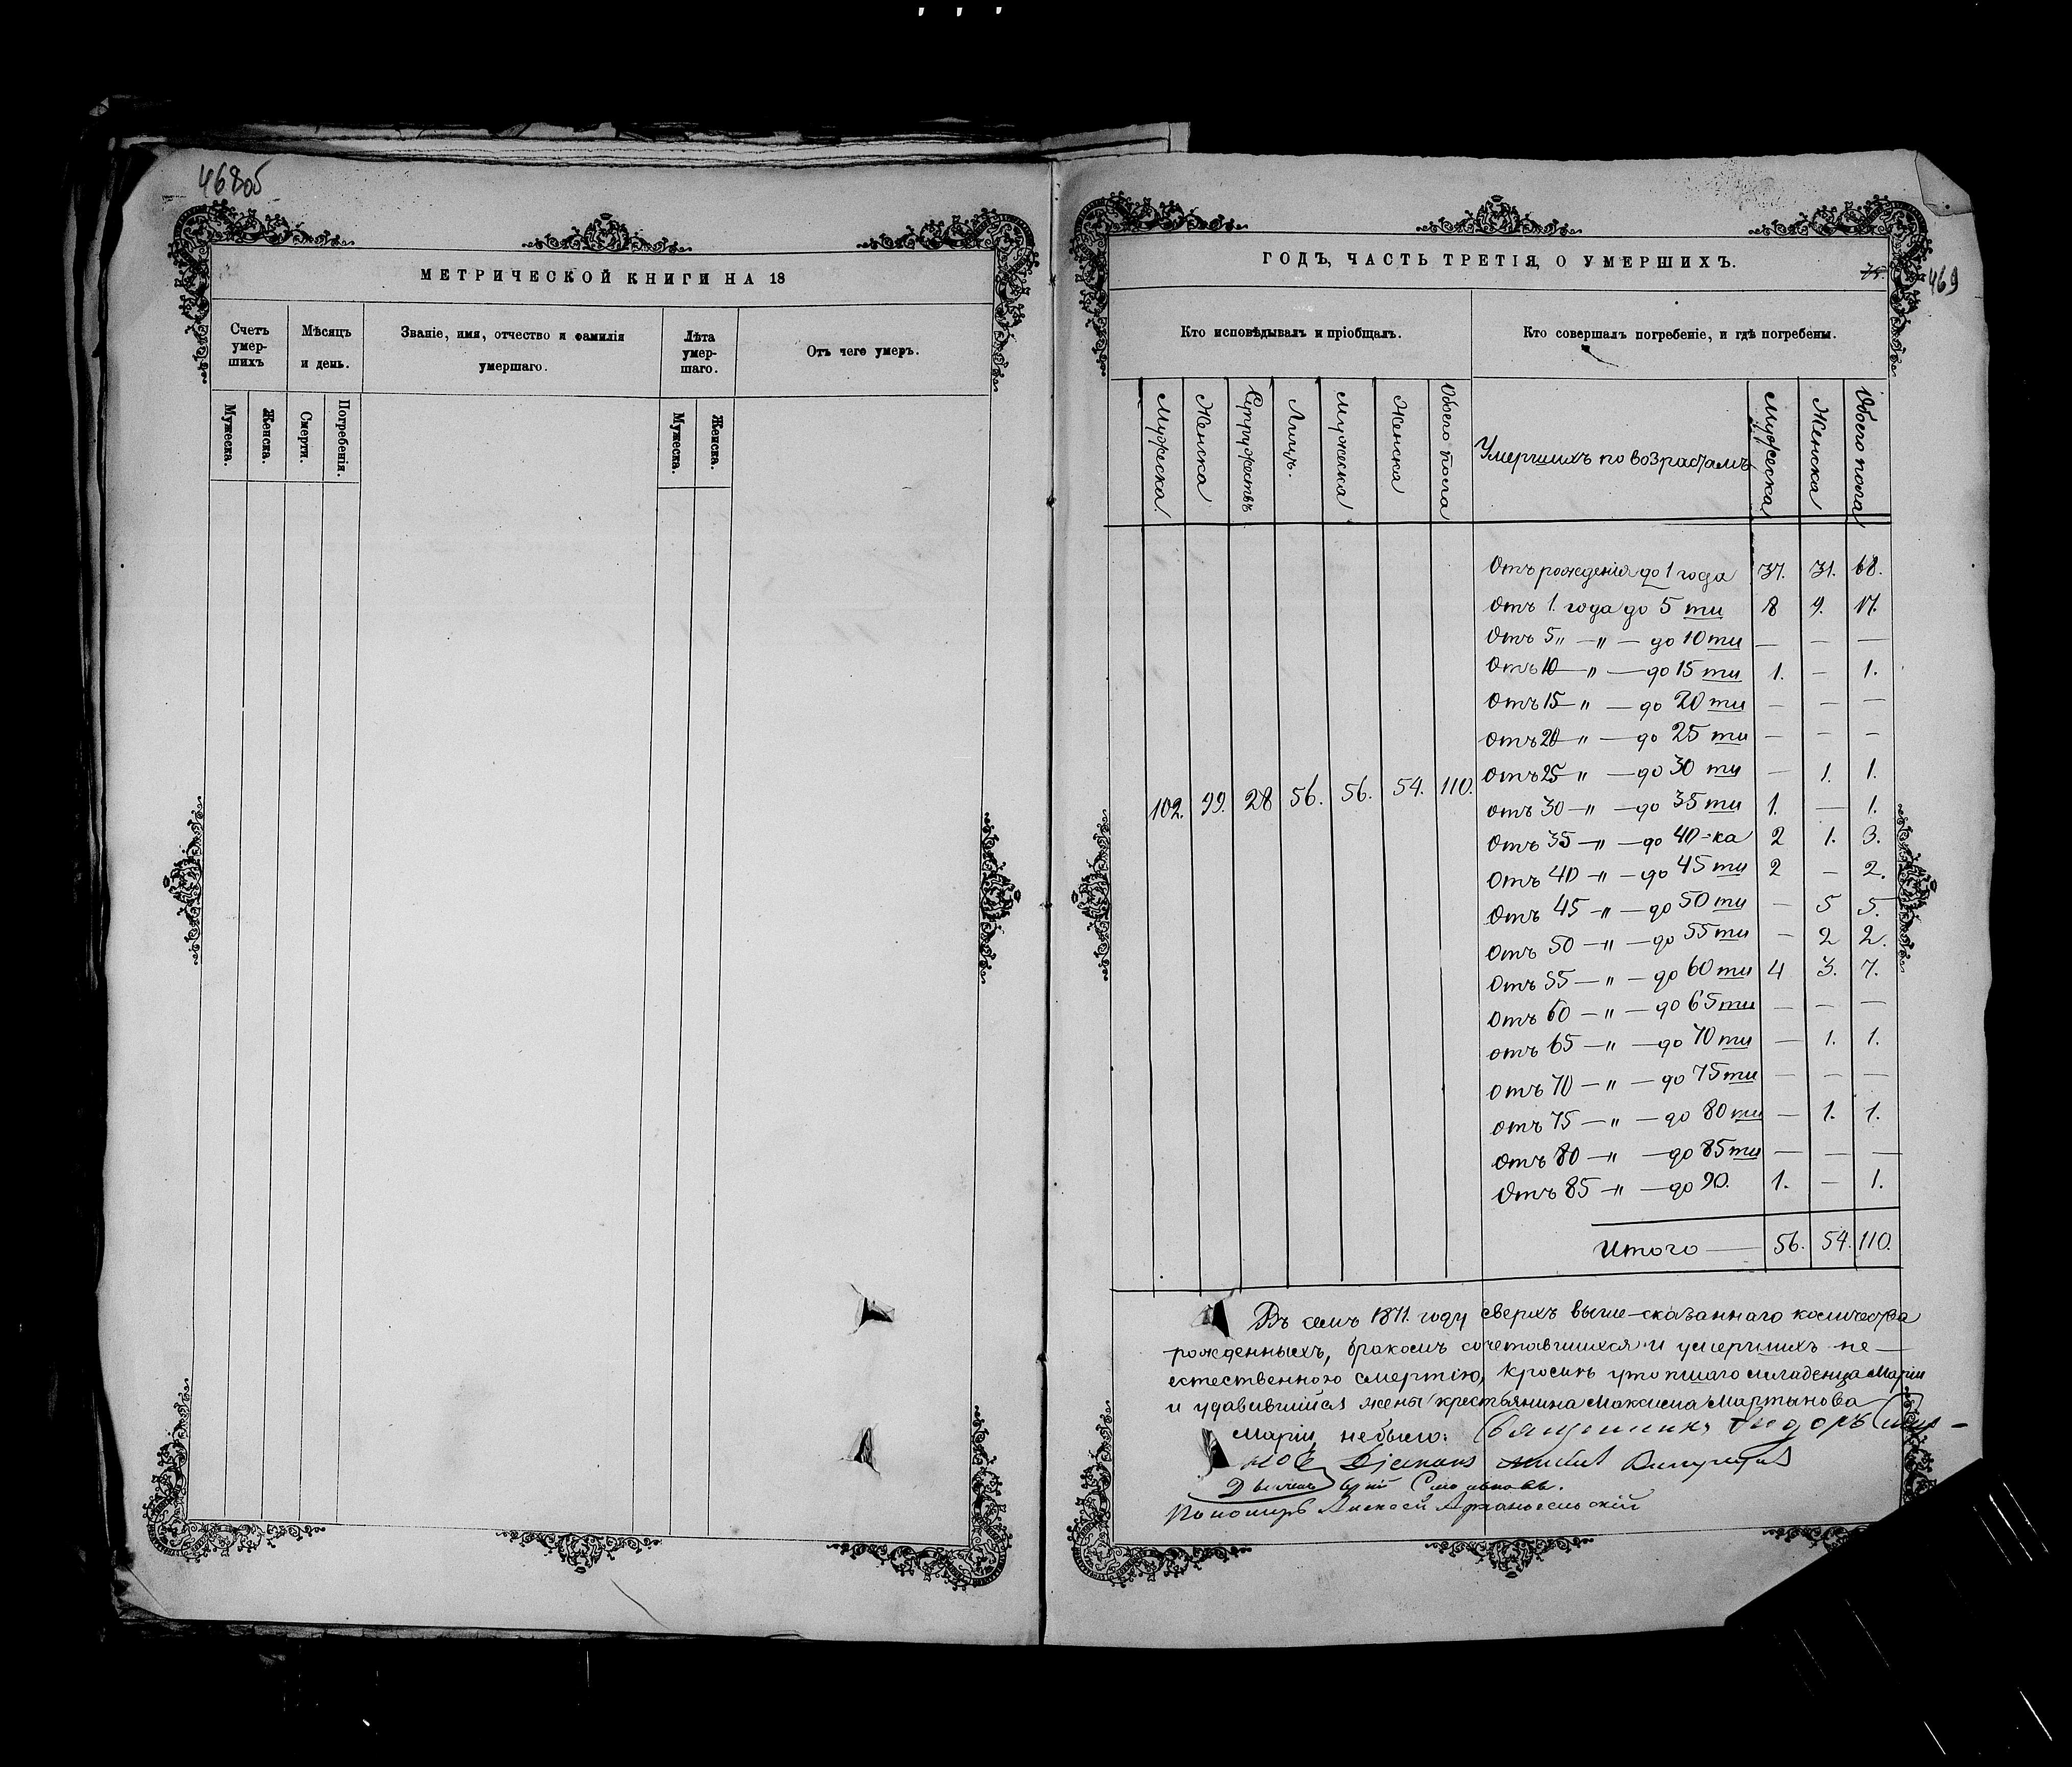 468об
МЕТРИЧЕСКОЙ КНИГИ НА 18
Счетъ умер-шихъ
Мѣсяцъ и день.
Званіе, имя, отчество и фамилія умершаго.
Лѣта умер-шаго.
Отъ чего умеръ.
Мужеска.
Женска.
Смерти.
Погребенія.
Мужеска.
Женска.
ГОДЪ, ЧАСТЬ ТРЕТІЯ, О УМЕРШИХЪ.
75.
469
Кто исповѣдывалъ и пріобщалъ.
Кто совершалъ погребеніе, и гдѣ погребены.
Мужеска
Женска
Супружествъ
Лицъ.
Мужеска
Женска
Обоего пола
Умершихъ по возрастамъ
Мужеска
Женска
Обоего пола
102. 99. 28 56. 56. 54. 110.
Отъ рожденія до 1 года 37. 31. 68.
Отъ 1. года до 5 ти 8 9. 17.
Отъ 5 „ — „ — до 10 ти — — —
Отъ 10 — „ — до 15 ти 1. — 1.
Отъ 15 — „ — до 20 ти — — —
Отъ 20 — „ — до 25 ти — — —
Отъ 25 — „ — до 30 ти — 1. 1.
Отъ 30 — „ — до 35 ти 1. — 1.
Отъ 35 — „ — до 40-ка 2 1. 3.
Отъ 40 — „ — до 45 ти 2 — 2.
Отъ 45 — „ — до 50 ти — 5 5.
Отъ 50 — „ — до 55 ти — 2 2.
Отъ 55 — „ — до 60 ти 4 3. 7.
Отъ 60 — „ — до 65 ти — — —
Отъ 65 — „ — до 70 ти — 1. 1.
Отъ 70 — „ — до 75 ти — — —
Отъ 75 — „ — до 80 ти — 1. 1.
Отъ 80 — „ — до 85 ти — — —
Отъ 85 — „ — до 90. 1. — 1.
Итого — 56. 54. 110.
Въ семъ 1871. году сверхъ выше-сказаннаго количества
рожденныхъ, бракомъ сочетавшихся и умершихъ не—
естественною смертію, кромѣ утопшаго младенца Маріи
и удавившійся жены крестьянина Максима Мартынова
Маріи, небыло. Священникъ Ѳеодоръ
Діаконъ
Дьячекъ
Пономарь Алексей Архангельскій